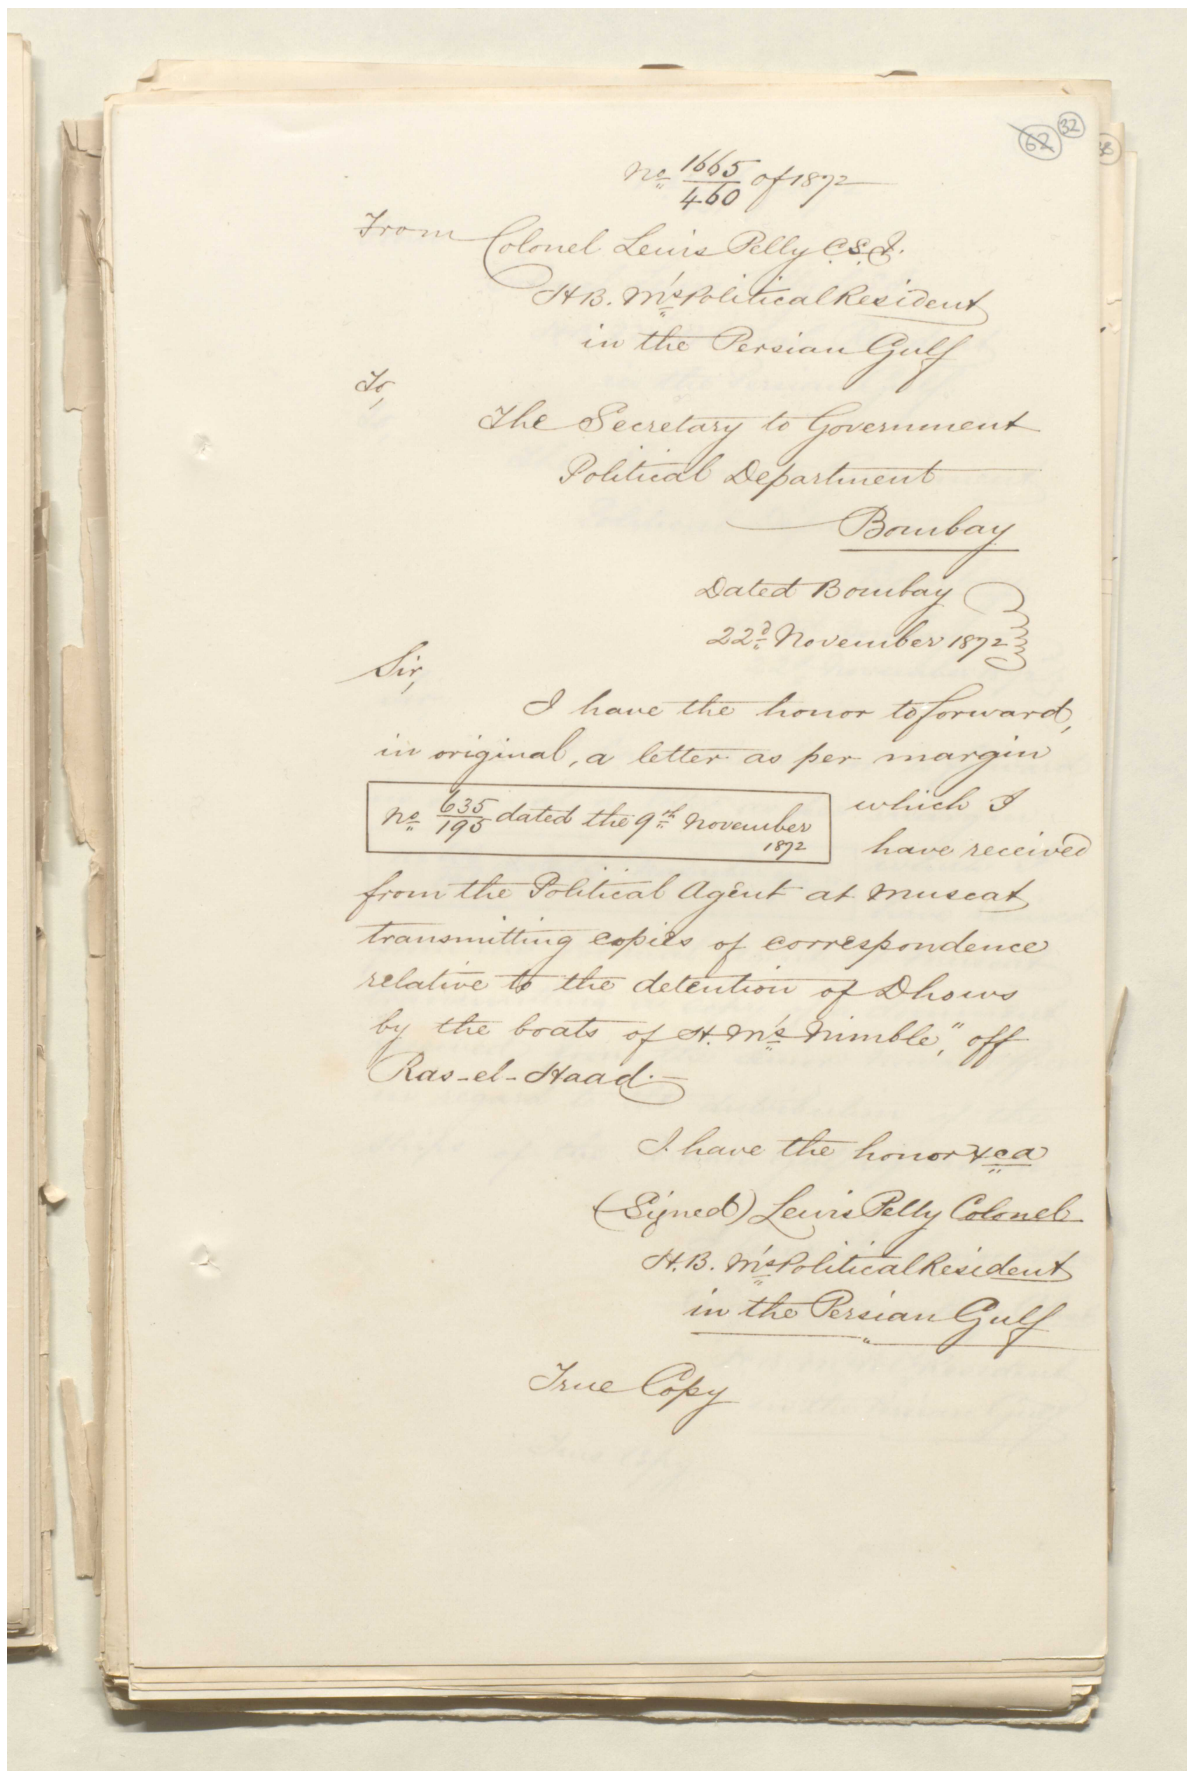 62 32
No 1665/460 of 1872
From Colonel Lewis Pelly C.S.I.
H.B. M's Political Resident
in the Persian Gulf
To,
The Secretary to Government
Political Department
Bombay
Dated Bombay
22d November 1872
Sir,
I have the honor to forward,
in original, a letter as per margin
No 635/195 dated the 9th November
1872
which I
have received
from the Political Agent at Muscat
transmitting copies of correspondence
relative to the detention of Dhows
by the boats of H. M's Nimble", off
Ras-el-Haad.
I have the honor &ca
(Signed) Lewis Pelly Colonel
H.B. M's Political Resident
in the Persian Gulf
True Copy